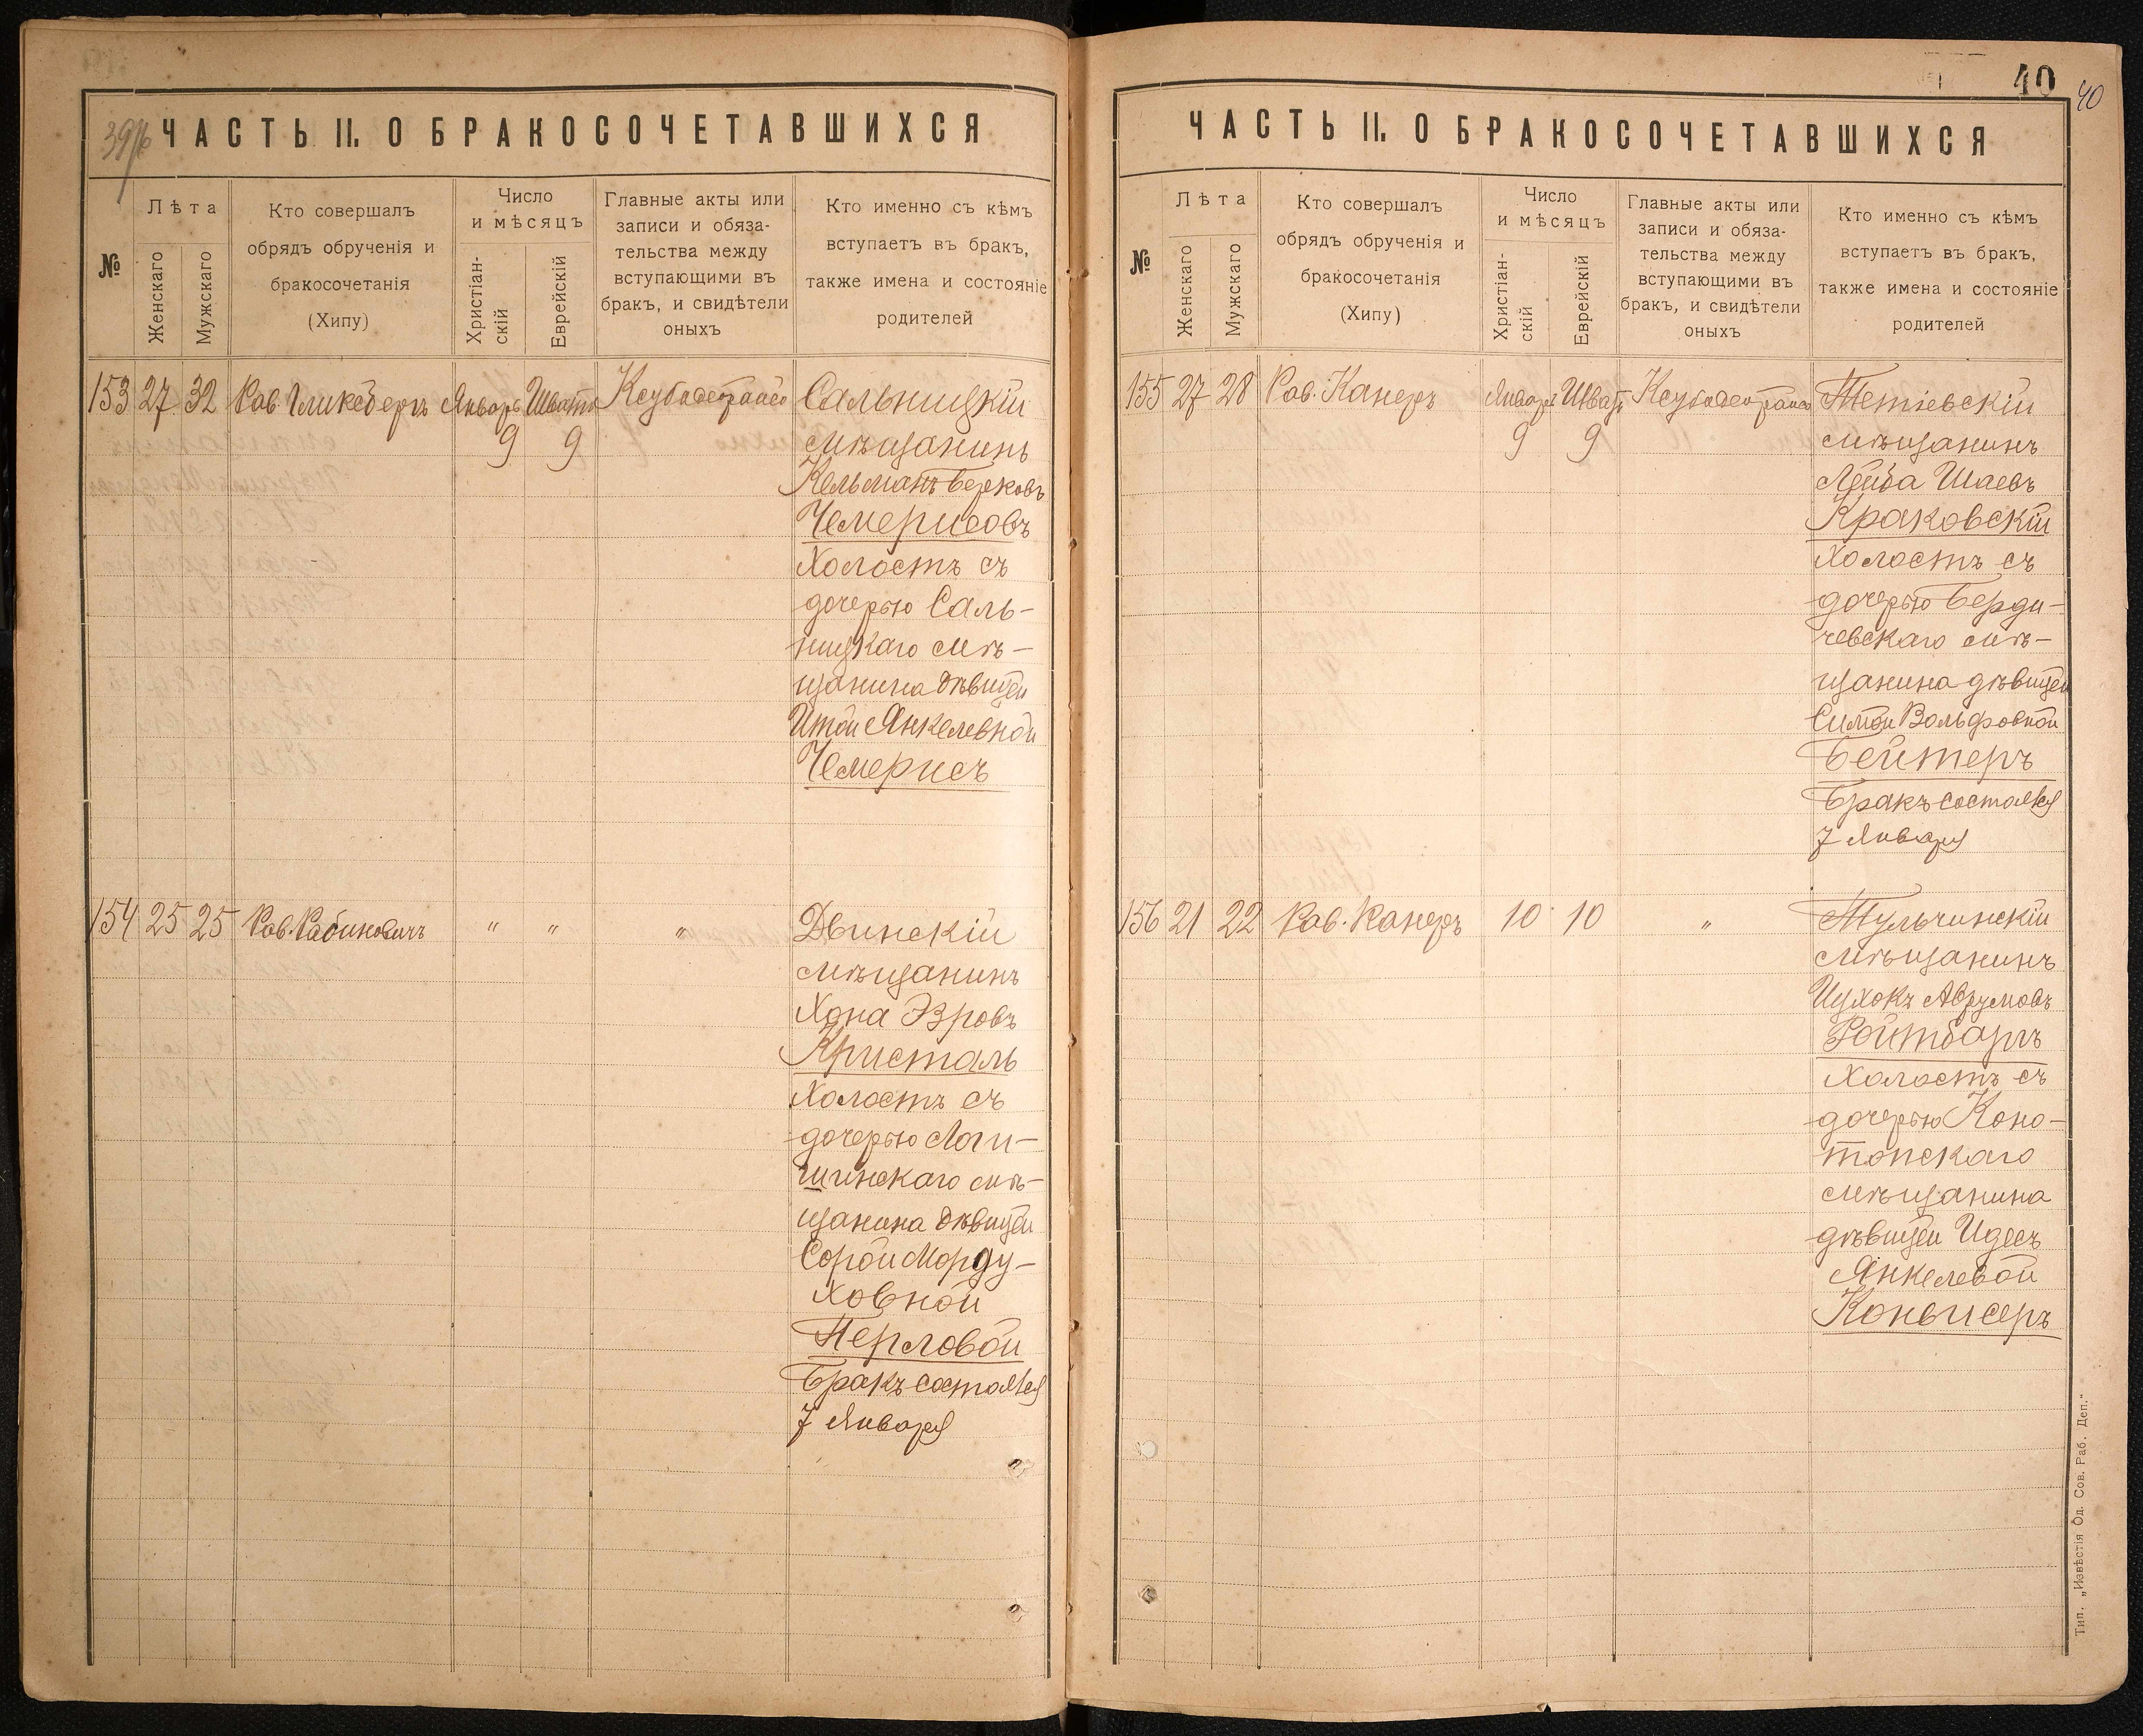 39
ЧАСТЬ II. О БРАКОСОЧЕТАВШИХСЯ
№
Лѣта
Женскаго
Мужскаго
Кто совершалъ
обрядъ обрученія и
бракосочетанія
(Хипу)
Число
и мѣсяцъ
Христіан-
скій
Еврейскій
Главные акты или
записи и обяза-
тельства между
вступающими въ
бракъ, и свидѣтели
оныхъ
Кто именно съ кѣмъ
вступаетъ въ бракъ,
также имена и состояніе
родителей
153 27 32 Рав. Гликсбергъ Январь Шватъ
9 9
Сальницкій
мѣщанинъ
Кельманъ Берковъ
Чемерисовъ
холостъ съ
дочерью Саль-
ницкаго мѣ-
щанина дѣвицей
Итой Янкелевной
Чемерисъ
154 25 25 Рав. Рабиновичъ „ „ „
Двинскій
мѣщанинъ
Хона Эзровъ
Кристаль
холостъ съ
дочерью Логи-
шинскаго мѣ-
щанина дѣвицей
Сорой Морду-
ховной
Перловой
Бракъ состоялся
7 Января
40
40
ЧАСТЬ II. О БРАКОСОЧЕТАВШИХСЯ
№
Лѣта
Женскаго
Мужскаго
Кто совершалъ
обрядъ обрученія и
бракосочетанія
(Хипу)
Число
и мѣсяцъ
Христіан-
скій
Еврейскій
Главные акты или
записи и обяза-
тельства между
вступающими въ
бракъ, и свидѣтели
оныхъ
Кто именно съ кѣмъ
вступаетъ въ бракъ,
также имена и состояніе
родителей
155 27 28 Рав. Канеръ Январь Шватъ
9 9
Тетіевскій
мѣщанинъ
Лейба Шаевъ
Краковскій
холостъ съ
дочерью Берди-
чевскаго мѣ-
щанина дѣвицей
Симой Вольфовной
Бейтеръ
Бракъ состоялся
7 Января
156 21 22 Рав. Канеръ 10 10 „
Тульчинскій
мѣщанинъ
Ицхокъ Аврумовъ
Ройтбаргъ
холостъ съ
дочерью Коно-
топскаго
мѣщанина
дѣвицей Идесъ
Янкелевой
Конвисеръ
Тип. „Извѣстія Од. Сов. Раб. Деп."